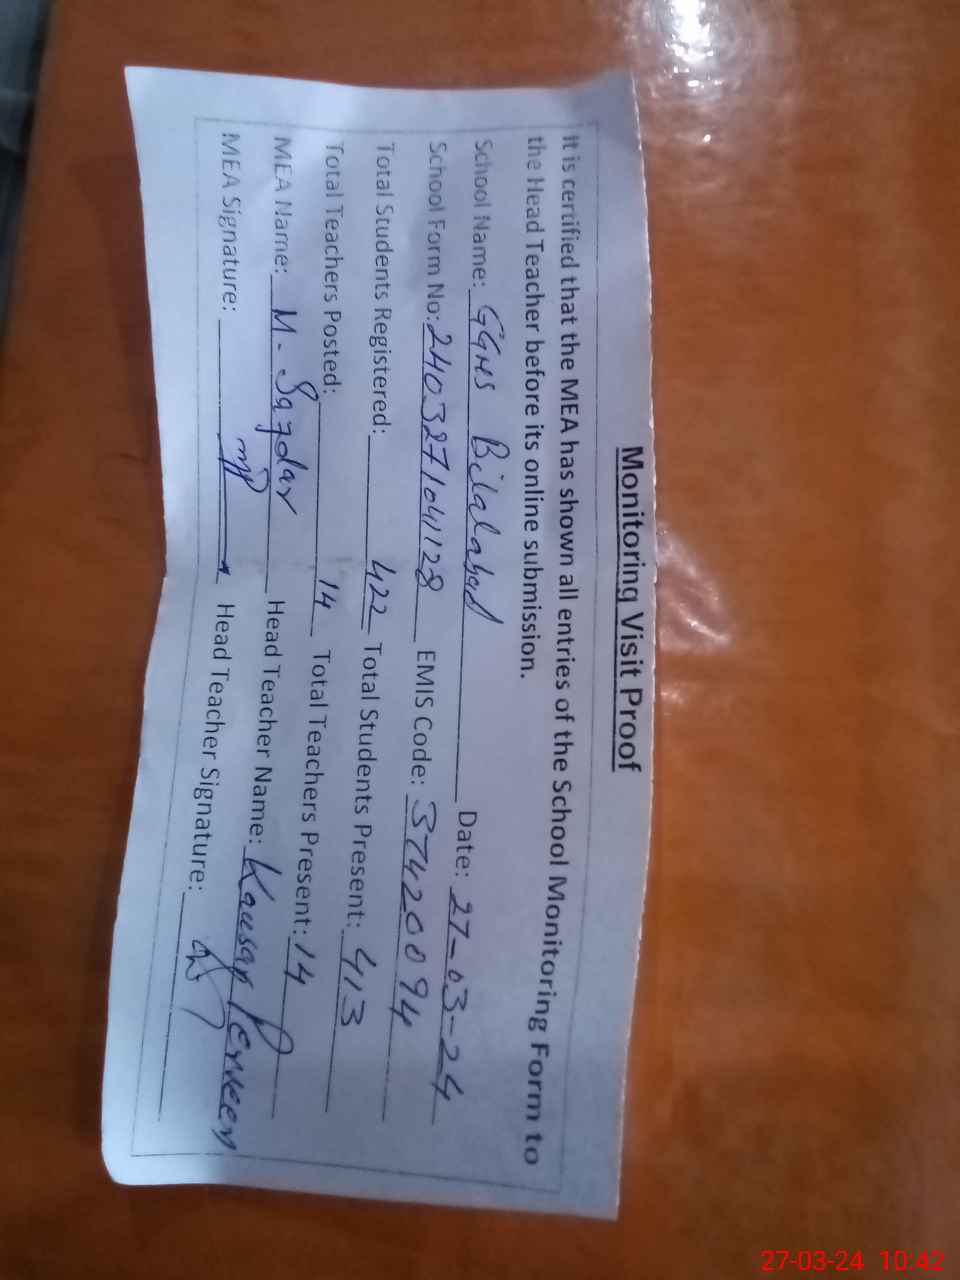 Monitoring Visit Proof
It is certified that the MEA has shown all entries of the School Monitoring Form to
the Head Teacher before its online submission.
School Name: GGHS Bilalabad Date: 27-03-24
School Form No: 2403271041128 EMIS Code: 37420094
Total Students Registered: 422 Total Students Present: 413
Total Teachers Posted: 14 Total Teachers Present: 14
MEA Name: M. Head Teacher Name: Kausar Perveen
MEA Signature: Head Teacher Signature:
27-03-24 10:42